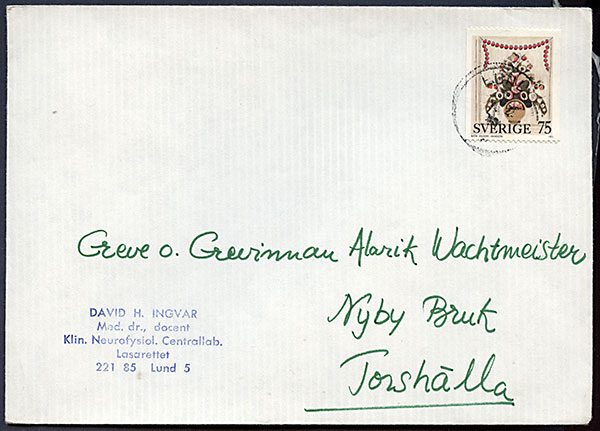 SVERIGE 75
Greve o. Grevinnan Alarik Wachtmeister
Nyby Bruk
Torshälla
DAVID H. INGVAR
Med. dr., docent
Klin. Neurofysiol. Centrallab.
Lasarettet
221 85 Lund 5